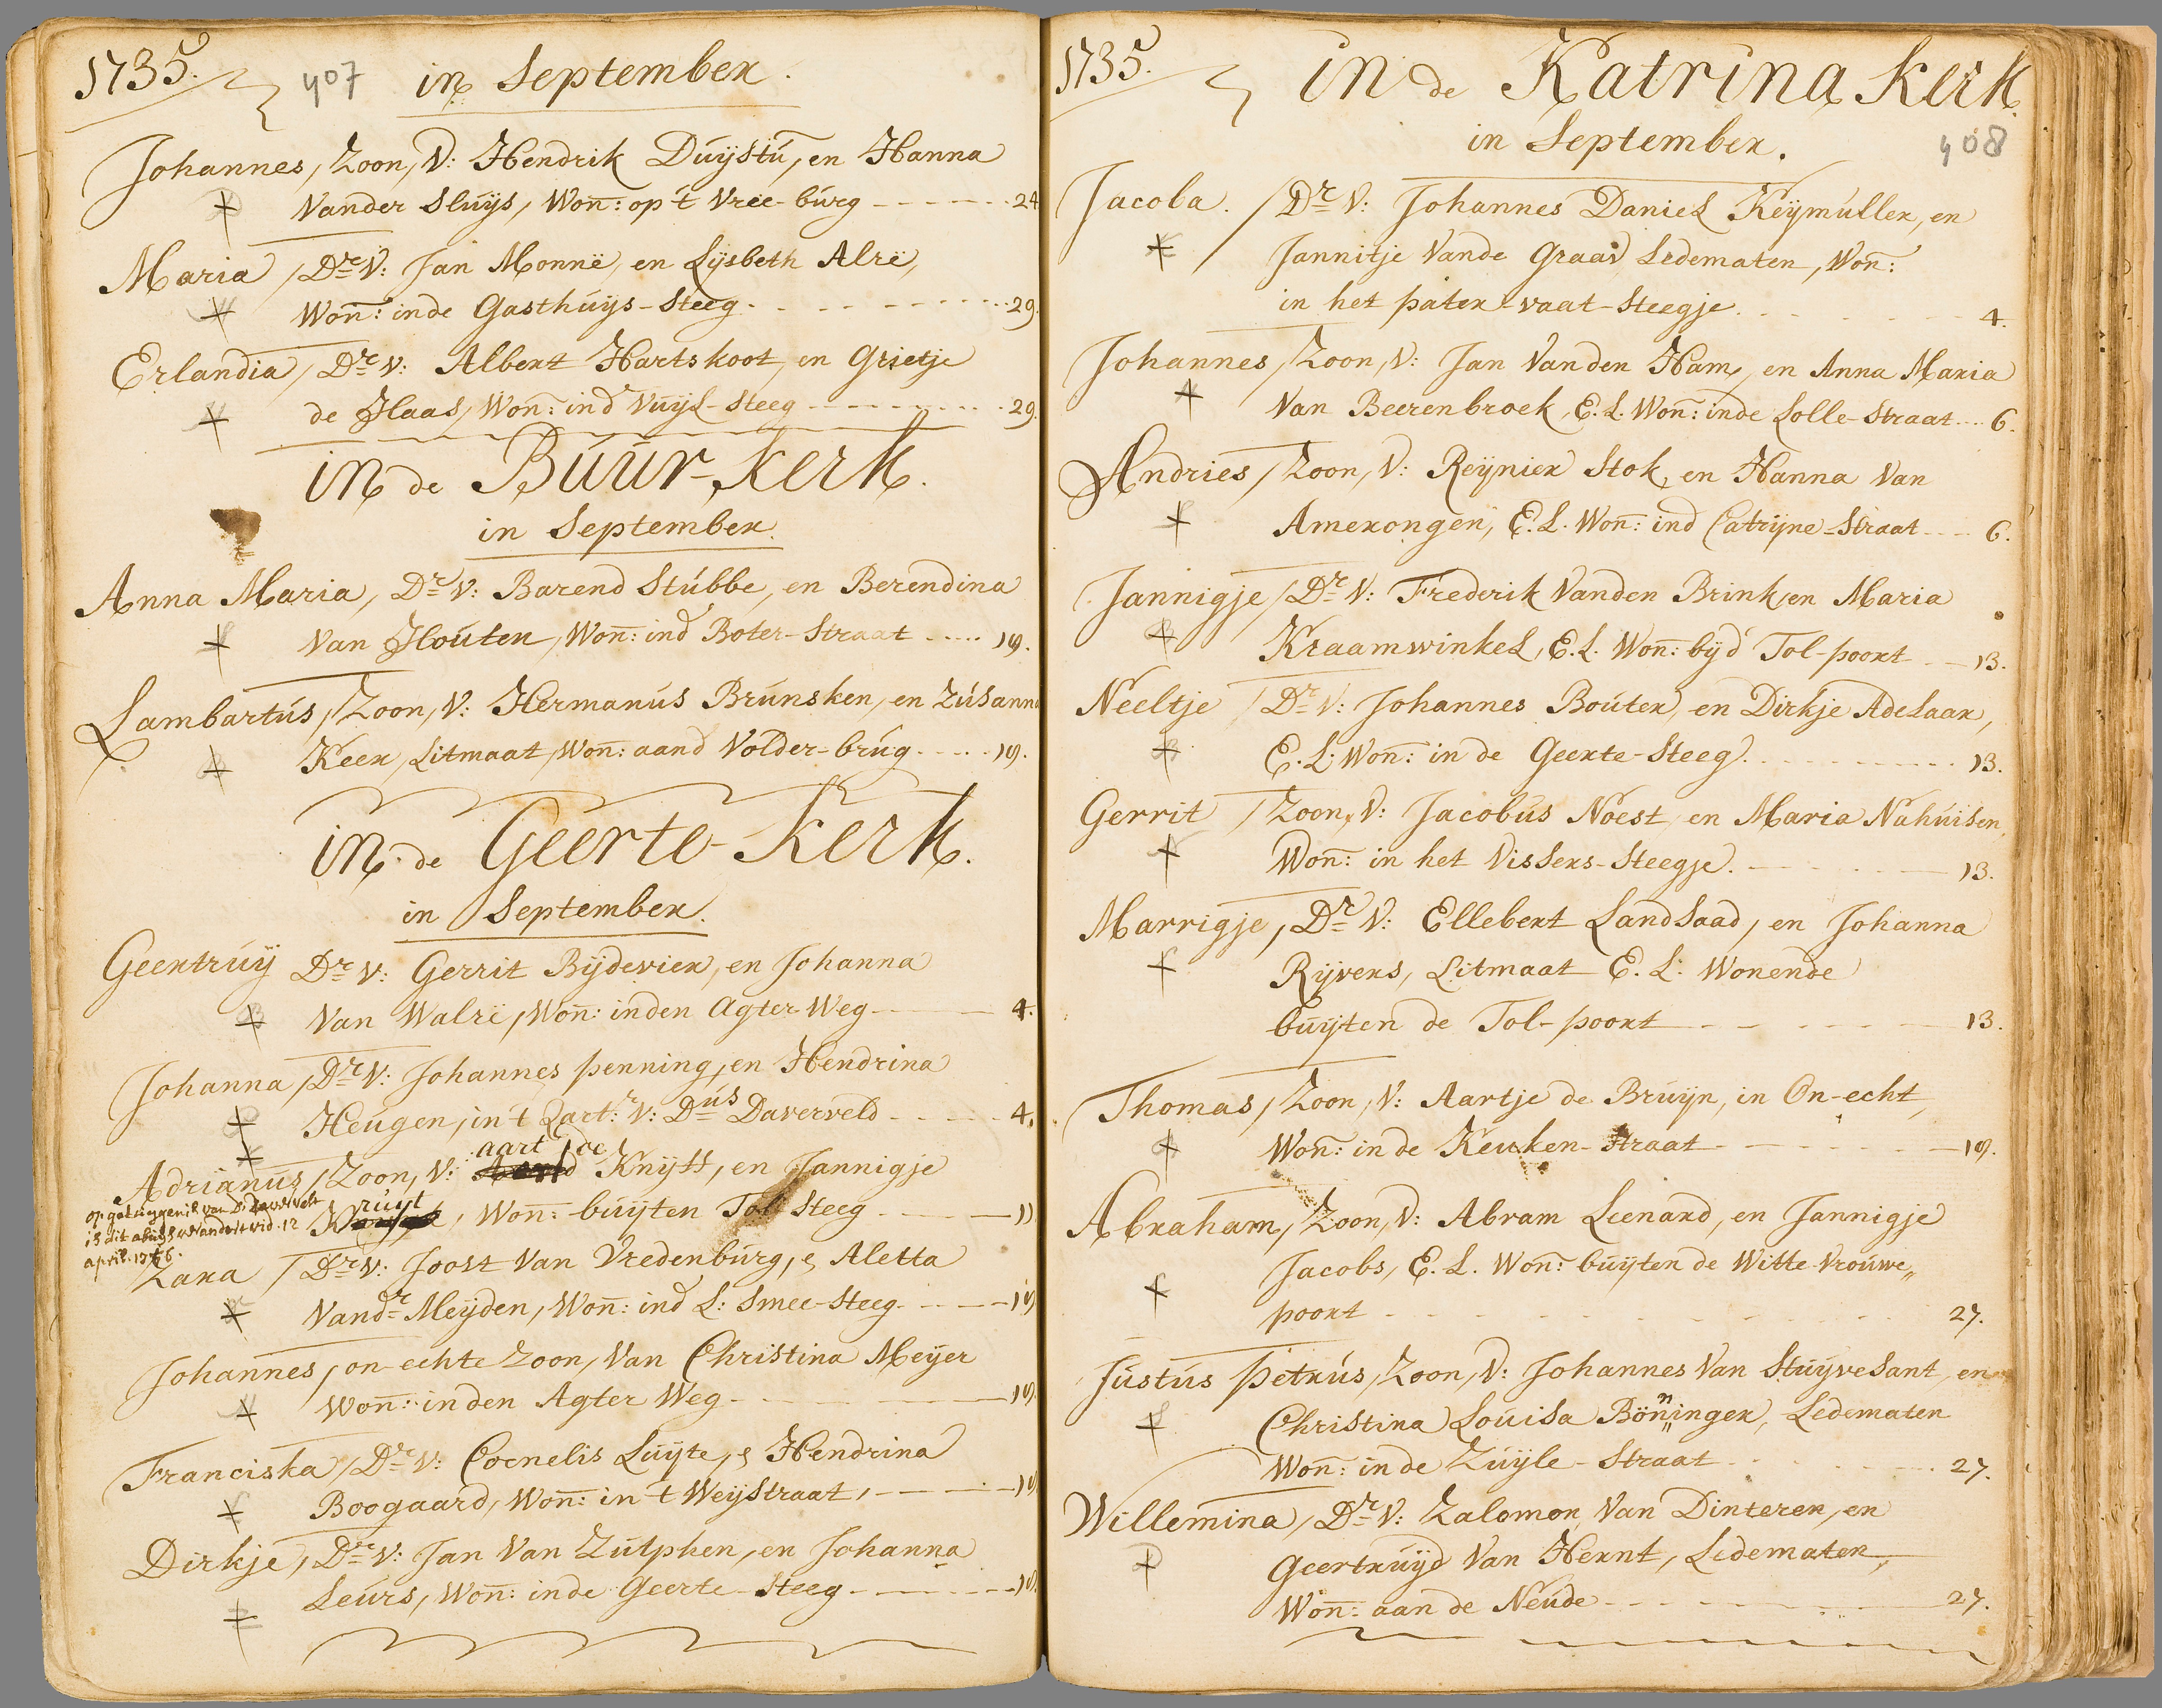 1735. 407 in September.
Johannes, Zoon, V: Hendrik Duÿstú, en Hanna
Vander Slúijs, Won̄: op 't Vree-búrg 24
Maria, Dr V: Jan Monnë, en Lÿsbeth Alrë,
Won̄: inde Gasthúijs-Steeg 29.
Erlandia, Dr V: Albert Hartskoot, en Grietje
de Haas, Won̄: ind Vuÿl-steeg 29.
in de Búúr-Kerk.
in September.
Anna Maria, Dr V: Barend Stúbbe, en Berendina
Van Hoúten, Won̄: ind Boter-Straat 19.
Lambartús, Zoon, V: Hermanús Brúnsken, en Zúsann
Keer, Litmaat, Won̄: aand Volder-brúg 19.
in de Geerte-Kerk.
in September.
Geertrúÿ Dr V: Gerrit Bÿdevier, en Johanna
Van Walrë, Won̄: inden Agter Weg 4.
Johanna, Dr V: Johannes penning, en Hendrina
Heúgen, in 't Qart:r V: Dús Daverveld 4.
aart de
Adrianús, Zoon, V: Knÿtt, en Jannigje
op getuygenis van Ds Davervelt
is dit abuys verandert vid. 12
april. 1766.
Kruyt, Won̄: buÿten Tol Steeg 11
Zara, Dr V: Joost Van Vredenbúrg, e Aletta
Vandr Meÿden, Won̄: ind L: Smee-Steeg 18
Johannes, on echte Zoon, Van Christina Meÿer
Won̄: in den Agter Weg 18
Franciska, Dr V: Cornelis Luÿte, e Hendrina
Boogaard, Won̄: in 't Weÿstraat, 18
Dirkje, Dr V: Jan Van Zútphen, en Johanna
Leúrs, Won̄: inde Geerte Steeg 18.
1735. in de Katrina Kerk.
in September. 408
Jacoba. Dr V: Johannes Daniel Keÿmuller, en
Jannitje Vande Graav Ledematen, Won̄:
in het pater-vaat-Steegje 4.
Johannes, Zoon, V: Jan Vanden Ham, en Anna Maria
Van Beerenbroek, E. L. Won̄: inde Lolle-Straat 6.
Andries, Zoon, V: Reÿnier Stok, en Hanna Van
Amerongen, E. L. Won̄: ind Catrÿne-Straat 6.
Jannigje, Dr V: Frederik Vanden Brink, en Maria
Kraamwinkel, E. L. Won̄: bÿd Tol-poort 13.
Neeltje, Dr V: Johannes Boúter, en Dirkje Adelaar,
E. L: Won̄: in de Geerte-Steeg 13.
Gerrit, Zoon, V: Jacobús Noest, en Maria Nahúisen,
Won̄: in het Vissers-Steegje. 13.
Marrigje, Dr V: Ellebert Landsaad, en Johanna
Rÿvers, Litmaat E. L: Wonende
buÿten de Tol-poort 13.
Thomas, Zoon, V: Aartje de Brúyn, in On-echt,
Won̄: in de Keuken-Straat 19.
Abraham, Zoon, V: Abram Leenard, en Jannigje
Jacobs, E. L. Won̄: buÿten de Witte Vroúwe„
poort 27.
Jústús Petrús, Zoon, V: Johannes Van Stuÿvesant, en
Christina Loúisa Bönninger, Ledematen
Won̄: in de Zúÿle-Straat 27.
Willemina, Dr V: Zalomon Van Dinteren, en
Geertrúÿd Van Hernt, Ledematen,
Won̄: aan de Neúde 27.